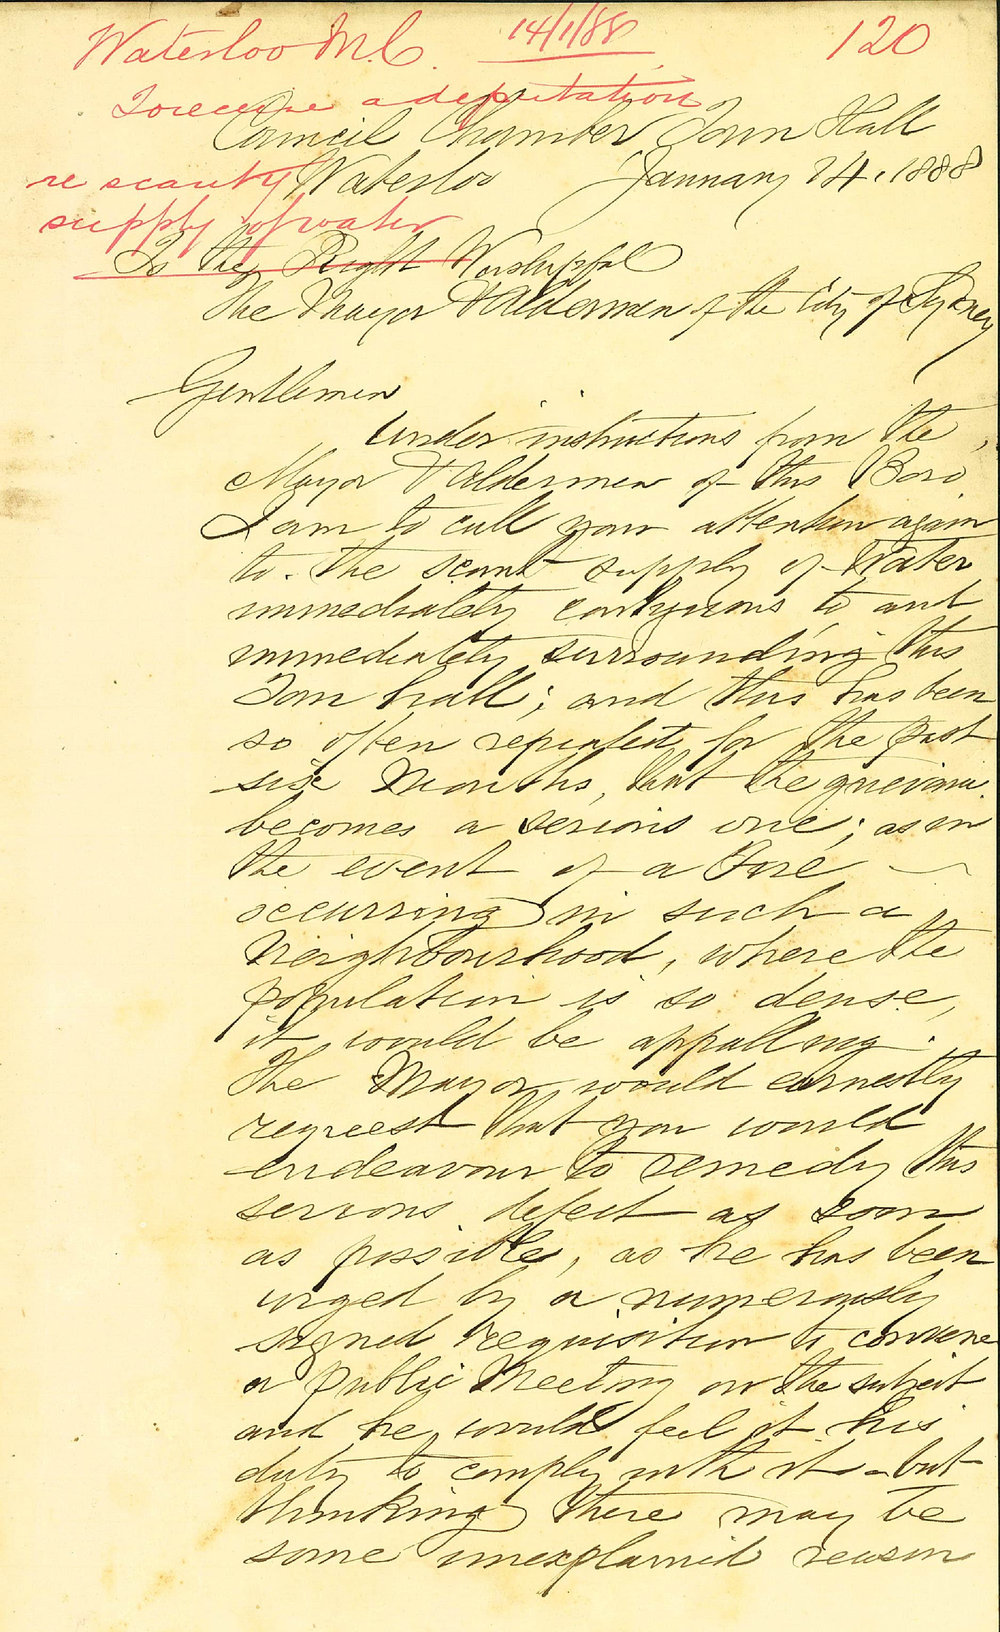 Waterloo M.C. 14/1/88 120
To receive a deputation
Council Chamber Town Hall
re scanty Waterloo January 14, 1888
supply of water
To the Right Worshipful
The Mayor & Aldermen of the City of Sydney
Gentlemen
Under instructions from the
Mayor & Aldermen of this Boro
I am to call your attention again
to the scant supply of Water
immediately contiguous to and
immediately surrounding this
Town hall; and this has been
so often repeated for the past
six Months, that the grievance
becomes a serious one; as in
the event of a Fire
occurring in such a
neighbourhood, where the
population is so dense,
it would be appalling.
The Mayor would earnestly
request that you would
endeavour to remedy this
serious defect as soon
as possible, as he has been
urged by a numerously
signed requisition to convene
a public Meeting on the subject
and he would feel it his
duty to comply with it - but
thinking there may be
some unexplained reason